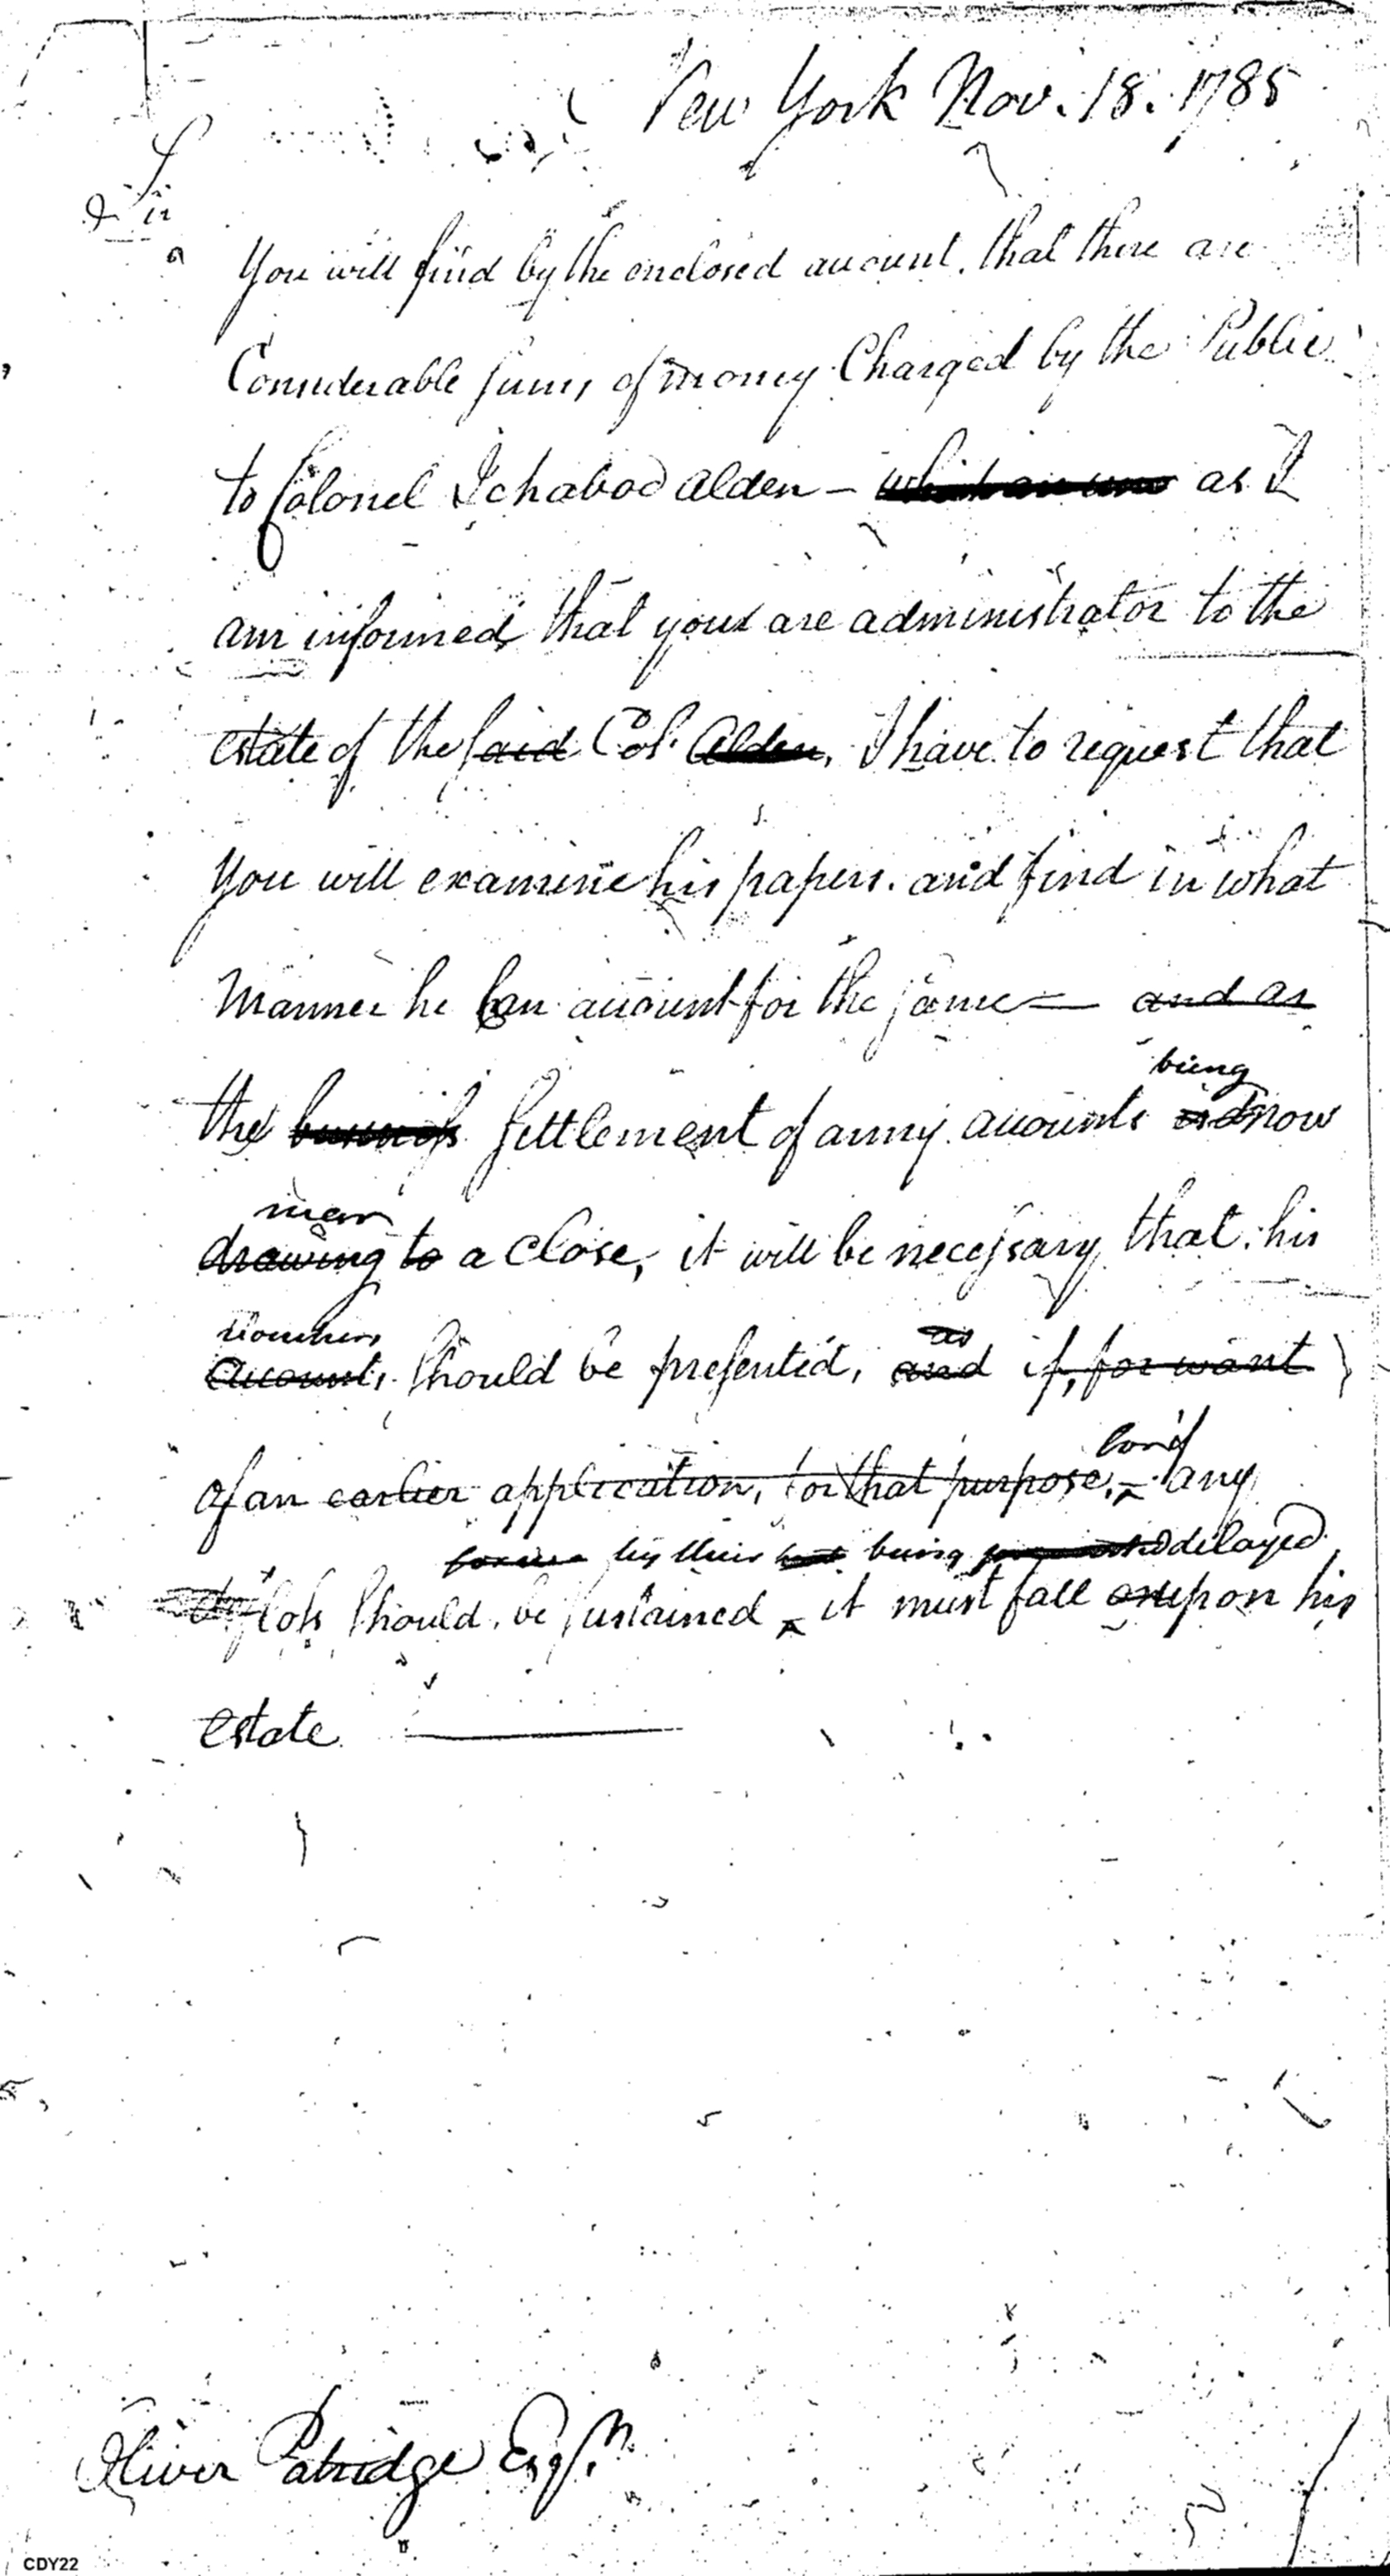 New York Nov. 18. 1785
Sir
You will find by the enclosed account, that there are
Considerable sums of money Charged by the Public
to Colonel Ichabod Alden – which are as I
am informed that your are administrator to the
estate of the said Col. Alden, I have to request that
You will examine his papers. and find in what
Manner he can account for the same — and as
being
the business settlement of army accounts is now
near
drawing to a close, it will be necessary that his
vouchers as
accounts, should be presented, and if, for want
of an earlier application, for that purpose, any
by their being delayed
loss should be sustained it must fall upon his
estate
Oliver Patridge Esqr.
CDY22